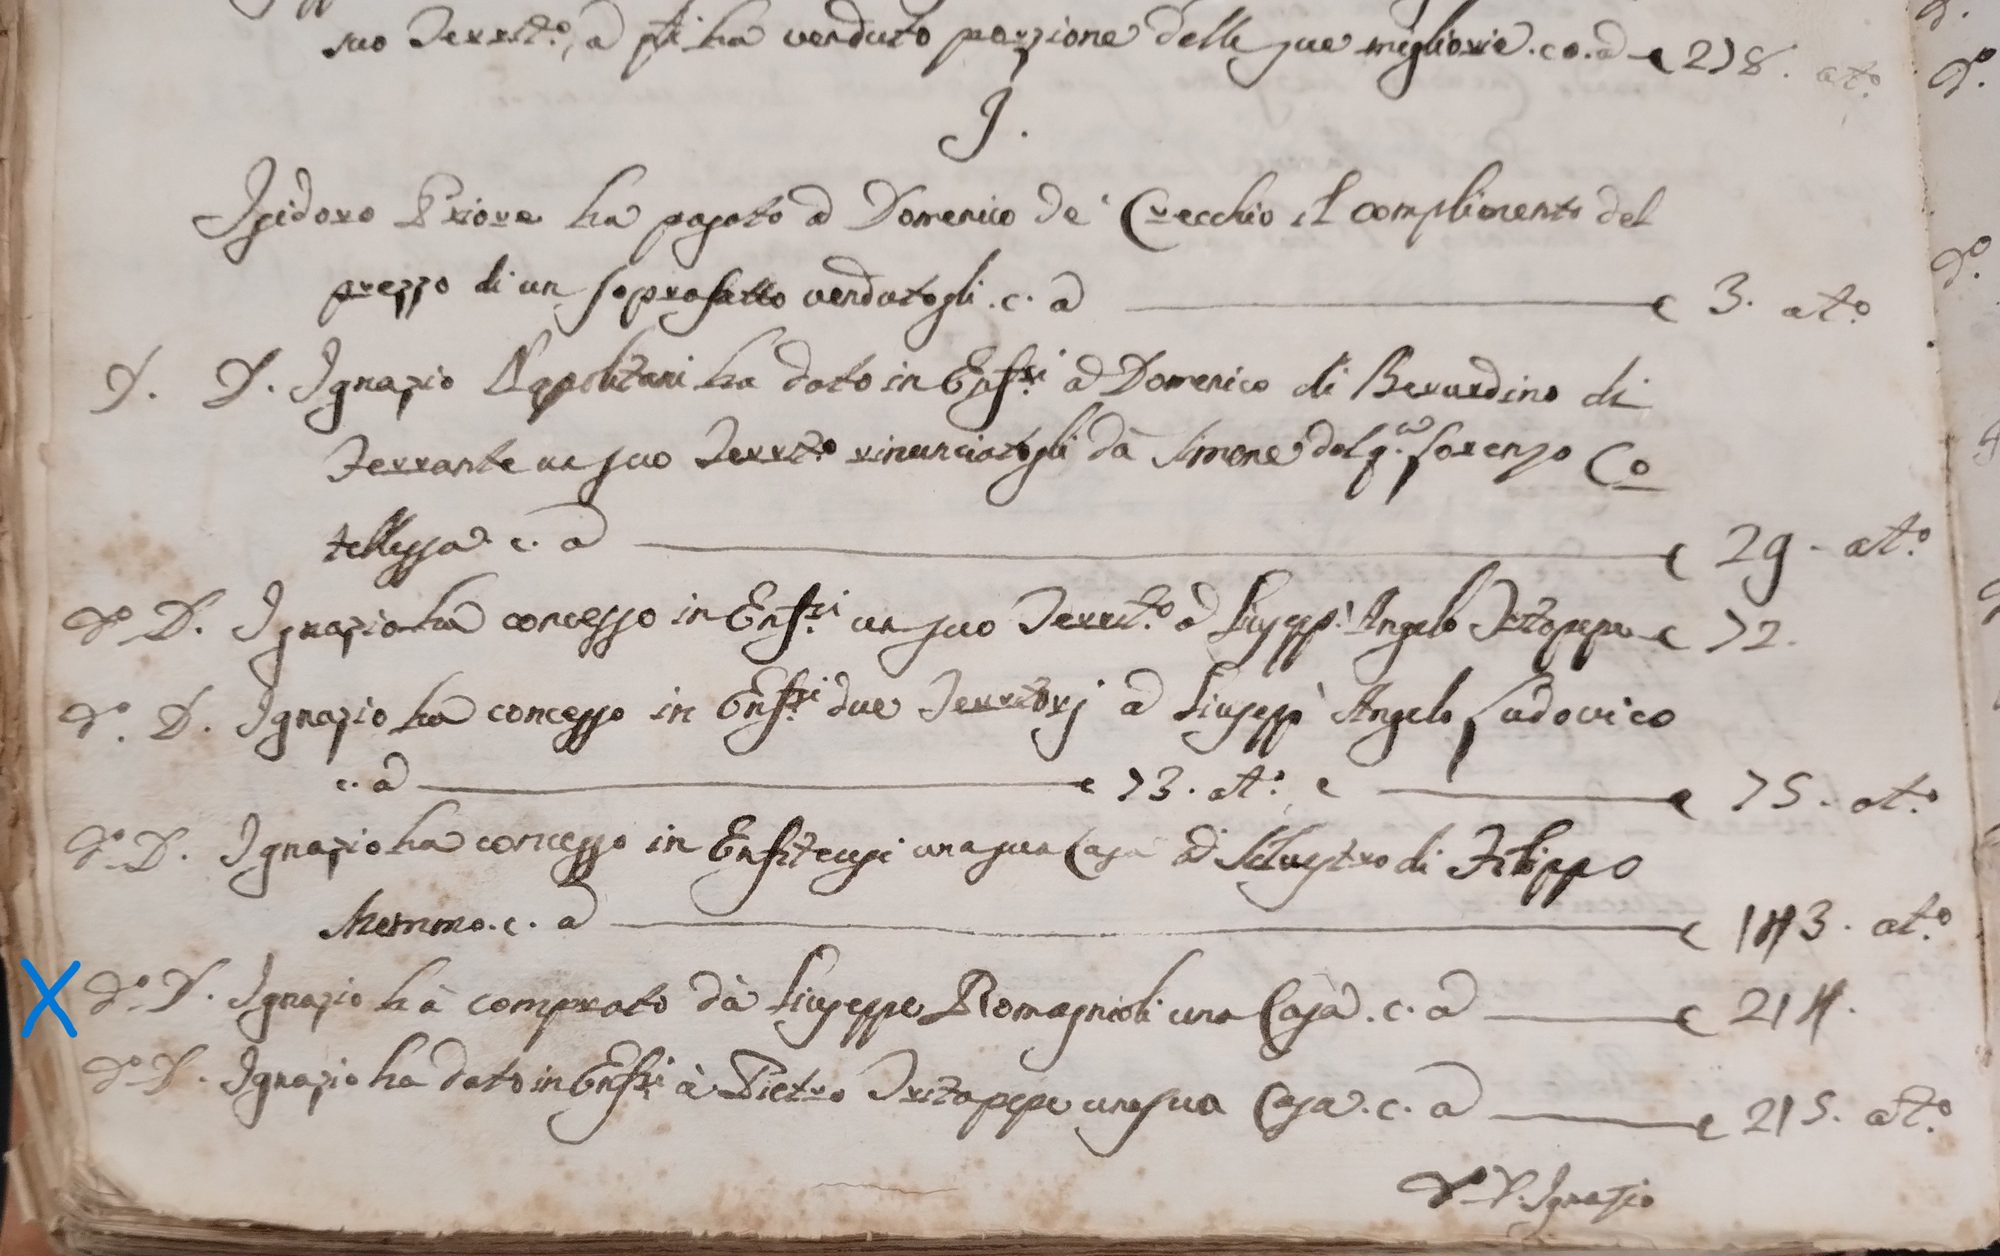 suo Territ.o, a ha venduto porzione delle sue migliorie. c. a c 278. at.o
J.
Isidoro Priore ha pagato a Domenico de Crecchio il complimento del
prezzo di un soprafatto vendutogli. c. a c 3. at.o
D. D. Ignazio Napolitani ha dato in Enf.si a Domenico di Berardino di
Ferrante un suo Territ.o rinunciatogli dà Simone del q.m Lorenzo Co
tellessa. c. a c 29. at.o
d.o D. Ignazio ha concesso in Enf.si un suo Territ.o a Giusepp' Angelo Tritapepe c 72.
d.o D. Ignazio ha concesso in Enf.si due Territorj a Giusepp' Angelo Ludovico
c. a c 73. at.o e c 75. at.o
d.o D. Ignazio ha concesso in Enfiteusi una sua Casa ad Silvestro di Filippo
Memmo. c. a c 143. at.o
X d.o D. Ignazio hà comprato dà Giuseppe Romagnioli una Casa. c. a c 214.
d.o D. Ignazio ha dato in Enf.si à Pietro Tritapepe una sua Casa. c. a c 215. at.o
d.o D. Ignazio